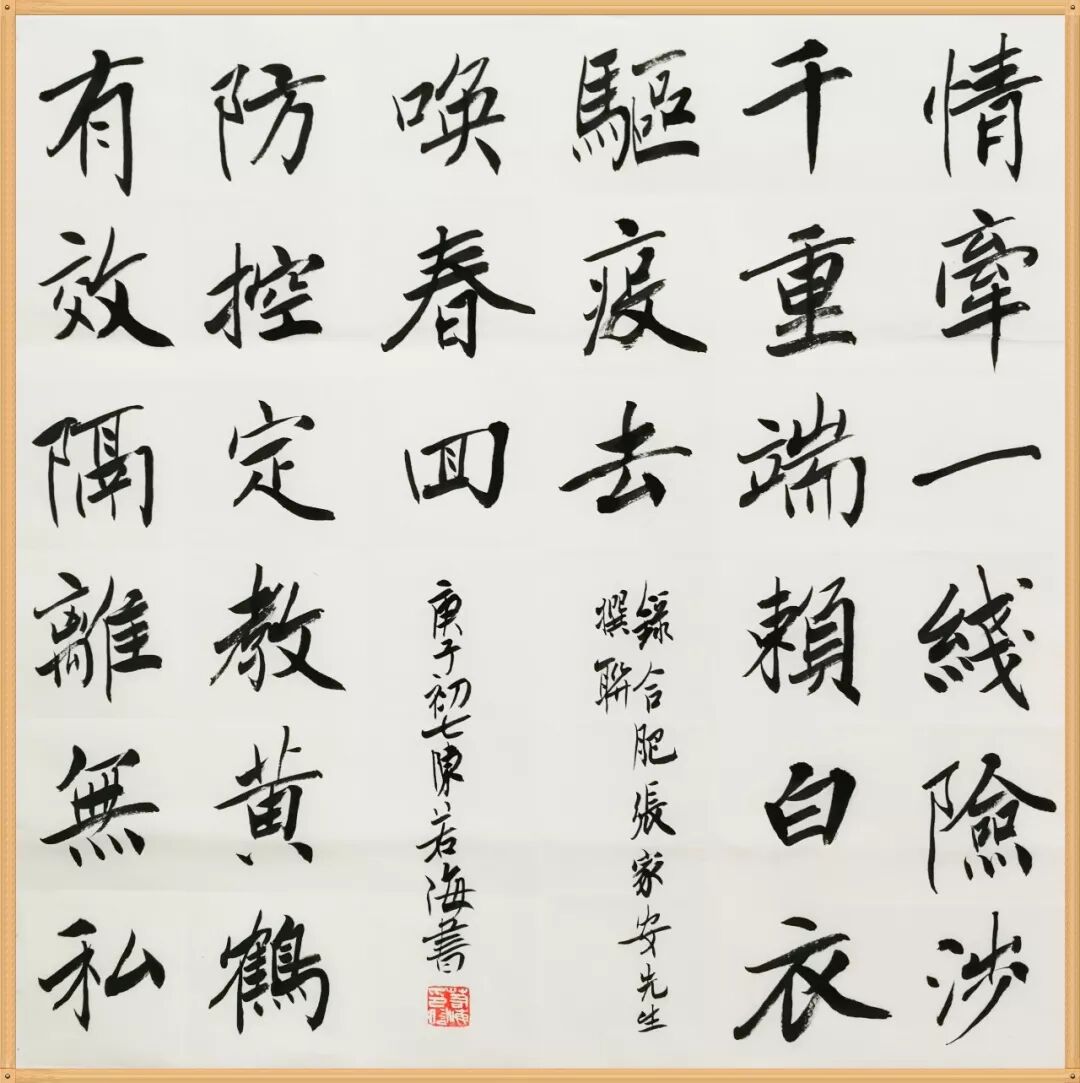 情牽一綫險涉
千重端賴白衣
驅疫去
錄合肥張家安先生
撰聯
有效隔離無私
防控定教黄鶴
唤春囬
庚子初七陳若海書